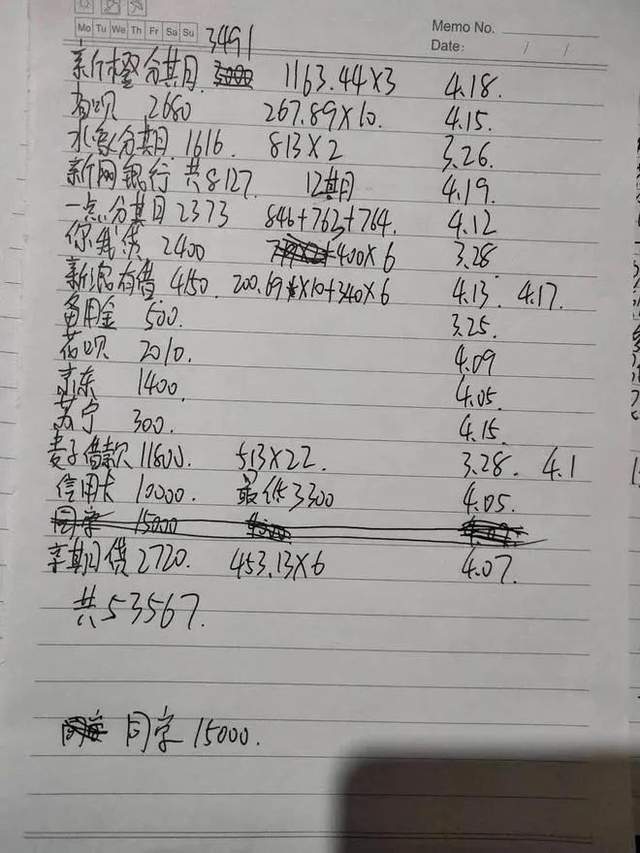 Memo No.
Mo Tu We Th Fr Sa Su
Date: / /
3491
新橙分期 1163.44×3 4.18.
有呗 2680 267.89×10. 4.15.
水象分期 1616. 813×2 3.26.
新网银行 共8127. 12期 4.19.
一点分期 2373 846+763+764. 4.12
你我贷 2400 400×6 3.28
新浪有借 4150. 200.69×10+340×6 4.13. 4.17.
备用金 500. 3.25.
花呗 2010. 4.09
京东 1400. 4.05.
苏宁 300. 4.15.
麦子借款 11800. 513×22. 3.28. 4.1
信用卡 10000. 最低3300 4.05.
同学 15000
期贷 2720. 453.13×6 4.07.
共53567.
同学 15000.